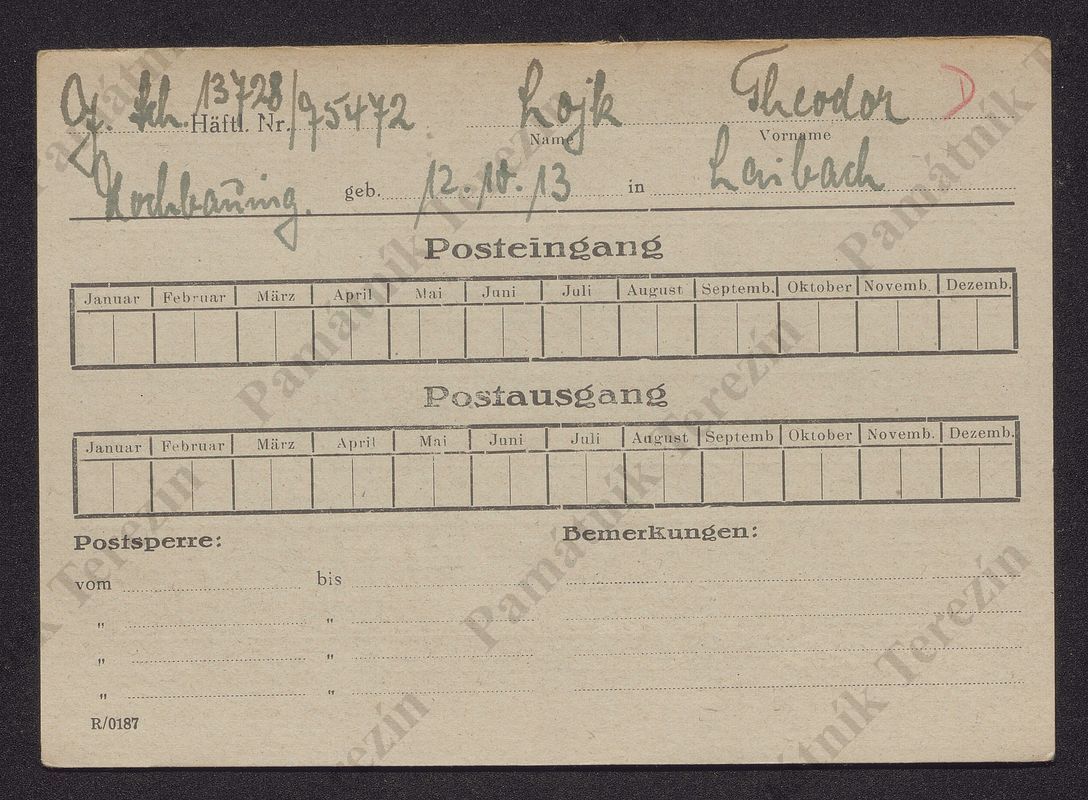 Sch. 13728/95472 Lojk Theodor D
Häftl. Nr. Name Vorname
Hochbauing. geb. 12.10.13 in Laibach
Posteingang
Januar Februar März April Mai Juni Juli August Septemb. Oktober Novemb. Dezemb.
Postausgang
Januar Februar März April Mai Juni Juli August Septemb Oktober Novemb. Dezemb.
Postsperre: Bemerkungen:
vom bis
" "
" "
" "
R/0187
Památník Terezín